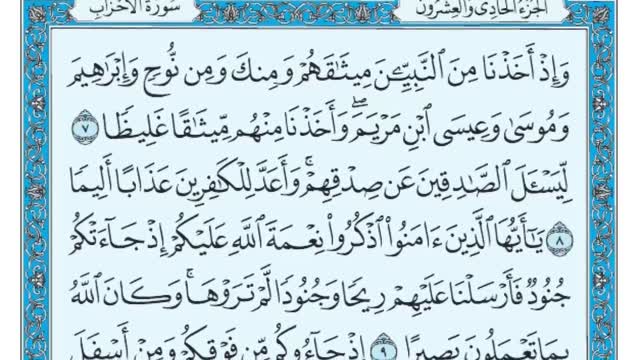 الجزء الحادي والعشرون سورة الأحزاب
وَإِذْ أَخَذْنَا مِنَ ٱلنَّبِيِّـۧنَ مِيثَٰقَهُمْ وَمِنكَ وَمِن نُّوحٍ وَإِبْرَٰهِيمَ
وَمُوسَىٰ وَعِيسَى ٱبْنِ مَرْيَمَۖ وَأَخَذْنَا مِنْهُم مِّيثَٰقًا غَلِيظًا ٧
لِّيَسْـَٔلَ ٱلصَّٰدِقِينَ عَن صِدْقِهِمْۚ وَأَعَدَّ لِلْكَٰفِرِينَ عَذَابًا أَلِيمًا
٨ يَٰٓأَيُّهَا ٱلَّذِينَ ءَامَنُوا۟ ٱذْكُرُوا۟ نِعْمَةَ ٱللَّهِ عَلَيْكُمْ إِذْ جَآءَتْكُمْ
جُنُودٌ فَأَرْسَلْنَا عَلَيْهِمْ رِيحًا وَجُنُودًا لَّمْ تَرَوْهَاۚ وَكَانَ ٱللَّهُ
بِمَا تَعْمَلُونَ بَصِيرًا ٩ إِذْ جَآءُوكُم مِّن فَوْقِكُمْ وَمِنْ أَسْفَلَ